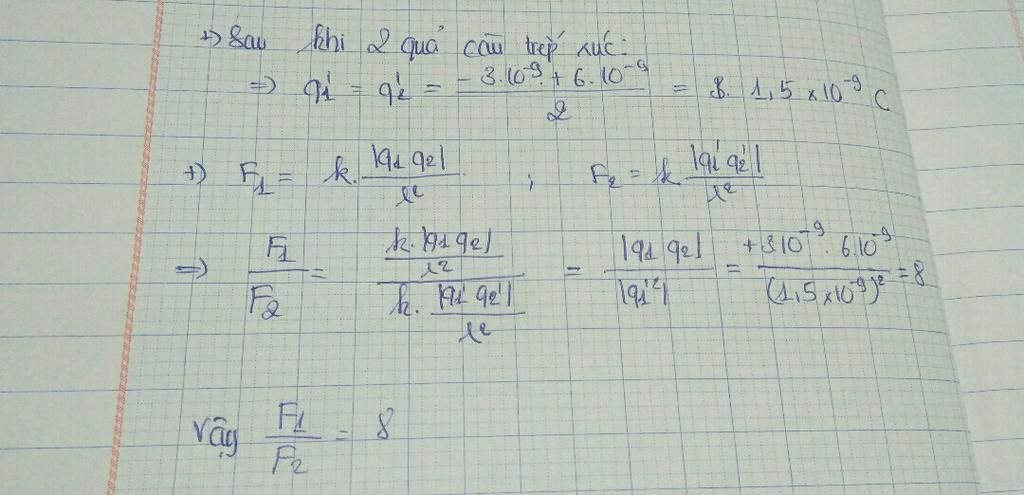 +) Sau khi 2 quả cầu tiếp xúc:
=> q1' = q2' = (-3.10⁻⁹ + 6.10⁻⁹)/2 = 1,5 x10⁻⁹ C
+) F1 = k. |q1 q2|/r² ; F2 = k |q1' q2'|/r²
=> F1/F2 = (k. |q1 q2|/r²)/(k. |q1' q2'|/r²) = |q1 q2|/|q1'²| = (+3 10⁻⁹ . 6.10⁻⁹)/(1,5 x10⁻⁹)² = 8
Vậy F1/F2 = 8